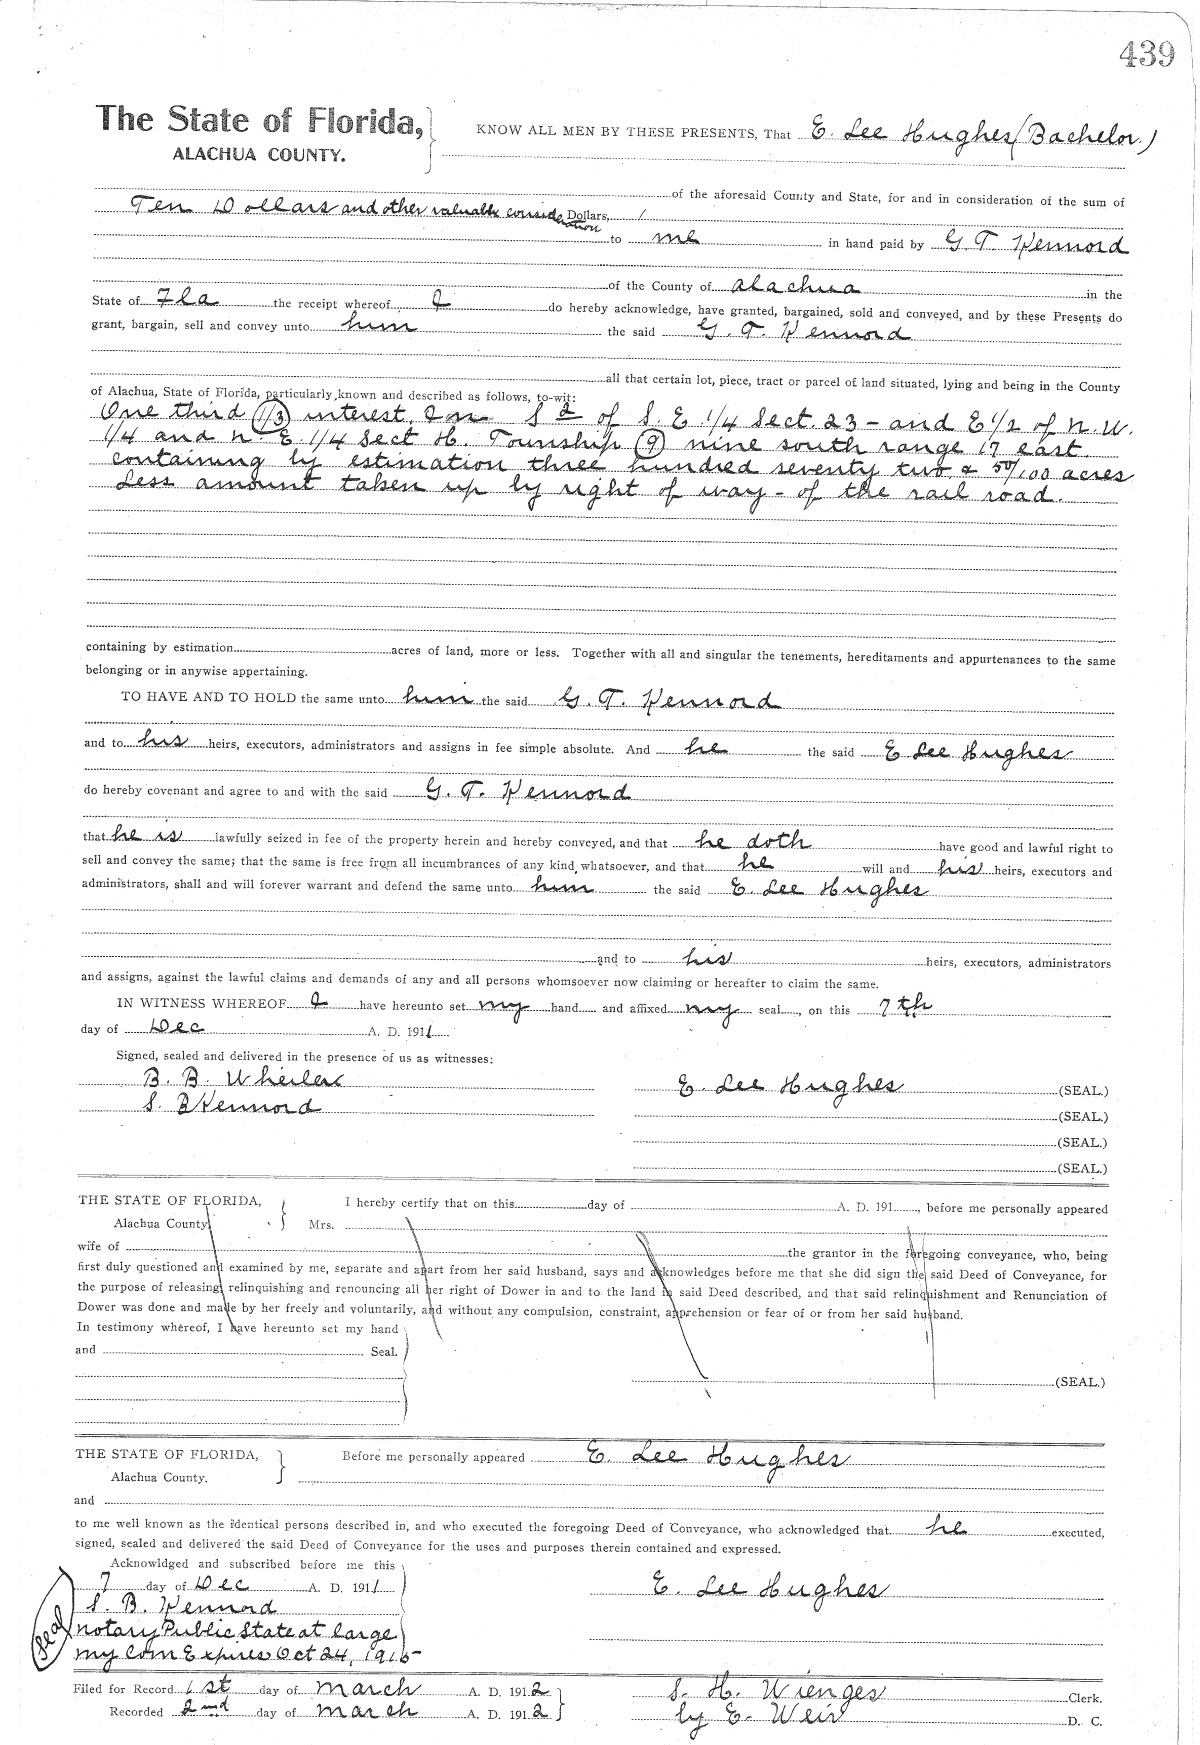 439
The State of Florida,
ALACHUA COUNTY.
KNOW ALL MEN BY THESE PRESENTS, That E. Lee Hughes (Bachelor.)
of the aforesaid County and State, for and in consideration of the sum of
Ten Dollars and other valuable consideration Dollars,
to me in hand paid by G T Kennord
of the County of Alachua in the
State of Fla the receipt whereof I do hereby acknowledge, have granted, bargained, sold and conveyed, and by these Presents do
grant, bargain, sell and convey unto him the said G. T. Kennord
all that certain lot, piece, tract or parcel of land situated, lying and being in the County
of Alachua, State of Florida, particularly known and described as follows, to-wit:
One third (1/3) interest In S of S. E 1/4 Sect. 23 - and E 1/2 of N. W.
1/4 and N. E 1/4 Sect Township (9) nine south range 17 east.
containing by estimation three hundred seventy two & 50/100 acres
Less amount taken up by right of way - of the rail road.
containing by estimation acres of land, more or less. Together with all and singular the tenements, hereditaments and appurtenances to the same
belonging or in anywise appertaining.
TO HAVE AND TO HOLD the same unto him the said G. T. Kennord
and to his heirs, executors, administrators and assigns in fee simple absolute. And he the said E Lee Hughes
do hereby covenant and agree to and with the said G. T. Kennord
that he is lawfully seized in fee of the property herein and hereby conveyed, and that he doth have good and lawful right to
sell and convey the same; that the same is free from all incumbrances of any kind whatsoever, and that he will and his heirs, executors and
administrators, shall and will forever warrant and defend the same unto him the said E. Lee Hughes
and to his heirs, executors, administrators
and assigns, against the lawful claims and demands of any and all persons whomsoever now claiming or hereafter to claim the same.
IN WITNESS WHEREOF I have hereunto set my hand and affixed my seal, on this 7th
day of Dec A. D. 1911
Signed, sealed and delivered in the presence of us as witnesses:
B. B. Wheeler
E. Lee Hughes (SEAL.)
S. B Kennord
(SEAL.)
(SEAL.)
(SEAL.)
THE STATE OF FLORIDA, I hereby certify that on this day of A. D. 191, before me personally appeared
Alachua County Mrs.
wife of the grantor in the foregoing conveyance, who, being
first duly questioned and examined by me, separate and apart from her said husband, says and acknowledges before me that she did sign the said Deed of Conveyance, for
the purpose of releasing, relinquishing and renouncing all her right of Dower in and to the land in said Deed described, and that said relinquishment and Renunciation of
Dower was done and made by her freely and voluntarily, and without any compulsion, constraint, apprehension or fear of or from her said husband.
In testimony whereof, I have hereunto set my hand
and Seal.
(SEAL.)
THE STATE OF FLORIDA, Before me personally appeared E. Lee Hughes
Alachua County.
and
to me well known as the identical persons described in, and who executed the foregoing Deed of Conveyance, who acknowledged that he executed,
signed, sealed and delivered the said Deed of Conveyance for the uses and purposes therein contained and expressed.
Acknowldged and subscribed before me this
7 day of Dec A. D. 1911
E. Lee Hughes
S. B. Kennord
Seal
notary Public State at large
my Com Expires Oct 24, 1915-
Filed for Record 1st day of march A. D. 1912 S. H. Wienges Clerk.
Recorded 2nd day of march A. D. 1912 by E. Weir D. C.